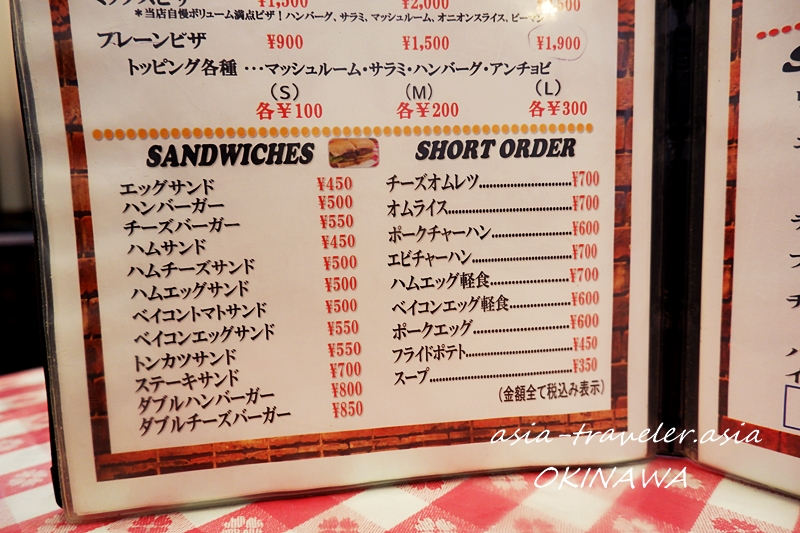 *当店自慢ボリューム満点ピザ!ハンバーグ、サラミ、マッシュルーム、オニオンスライス、ピーマン
プレーンピザ ¥900 ¥1,500 ¥1,900
トッピング各種 …マッシュルーム・サラミ・ハンバーグ・アンチョビ
(S) (M) (L)
各¥100 各¥200 各¥300
SANDWICHES
エッグサンド ¥450
ハンバーガー ¥500
チーズバーガー ¥550
ハムサンド ¥450
ハムチーズサンド ¥500
ハムエッグサンド ¥500
ベイコントマトサンド ¥500
ベイコンエッグサンド ¥550
トンカツサンド ¥550
ステーキサンド ¥700
ダブルハンバーガー ¥800
ダブルチーズバーガー ¥850
SHORT ORDER
チーズオムレツ……¥700
オムライス……¥700
ポークチャーハン……¥600
エビチャーハン……¥700
ハムエッグ軽食……¥700
ベイコンエッグ軽食……¥600
ポークエッグ……¥600
フライドポテト……¥450
スープ……¥350
(金額全て税込み表示)
asia-traveler.asia
OKINAWA